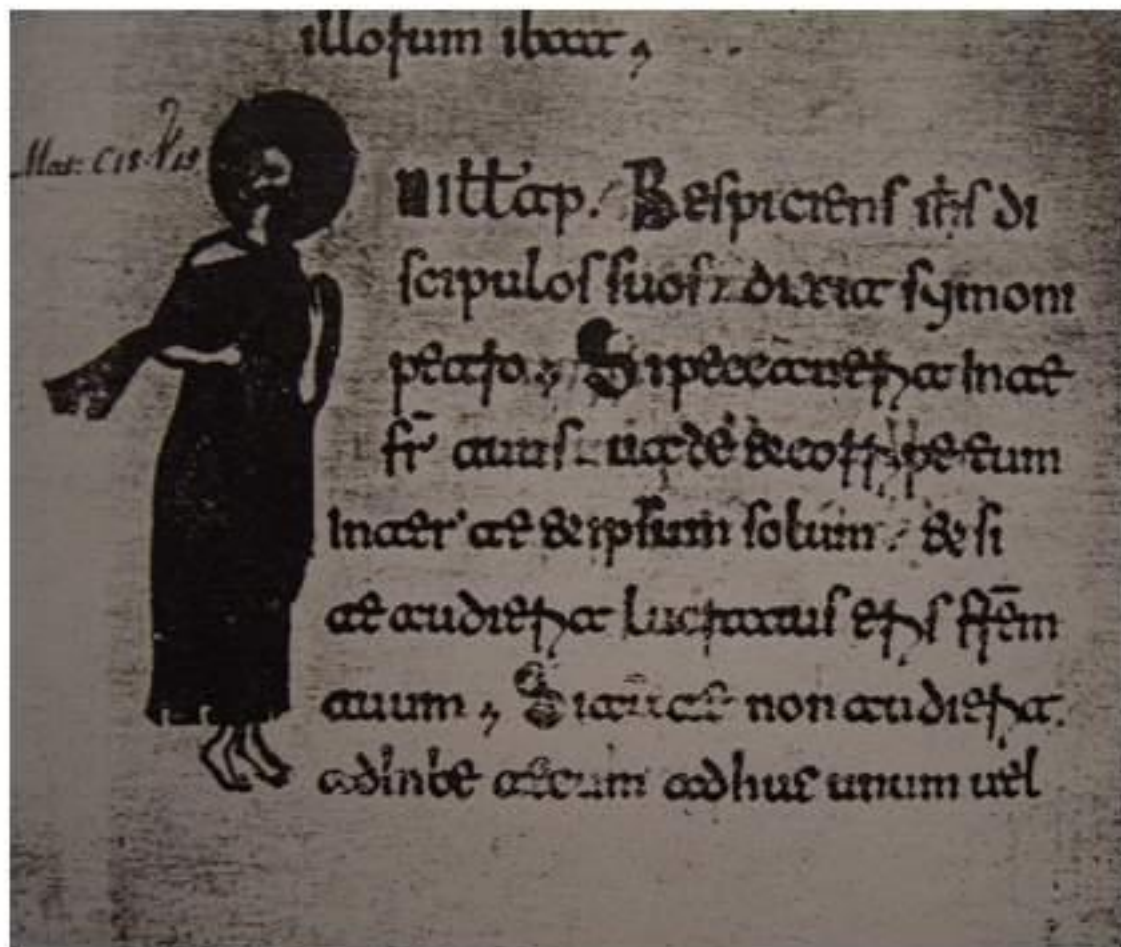 illorum ibat
Mat: C18. V15
Respiciens ihs di
scipulos suos dixit symoni
petro. Si peccaverit in te
fr tuus. vade & corripe eum
inter te & ipsum solum. & si
te audierit lucratus eris frem
tuum. Si aut te non audierit.
adhibe tecum adhuc unum vel